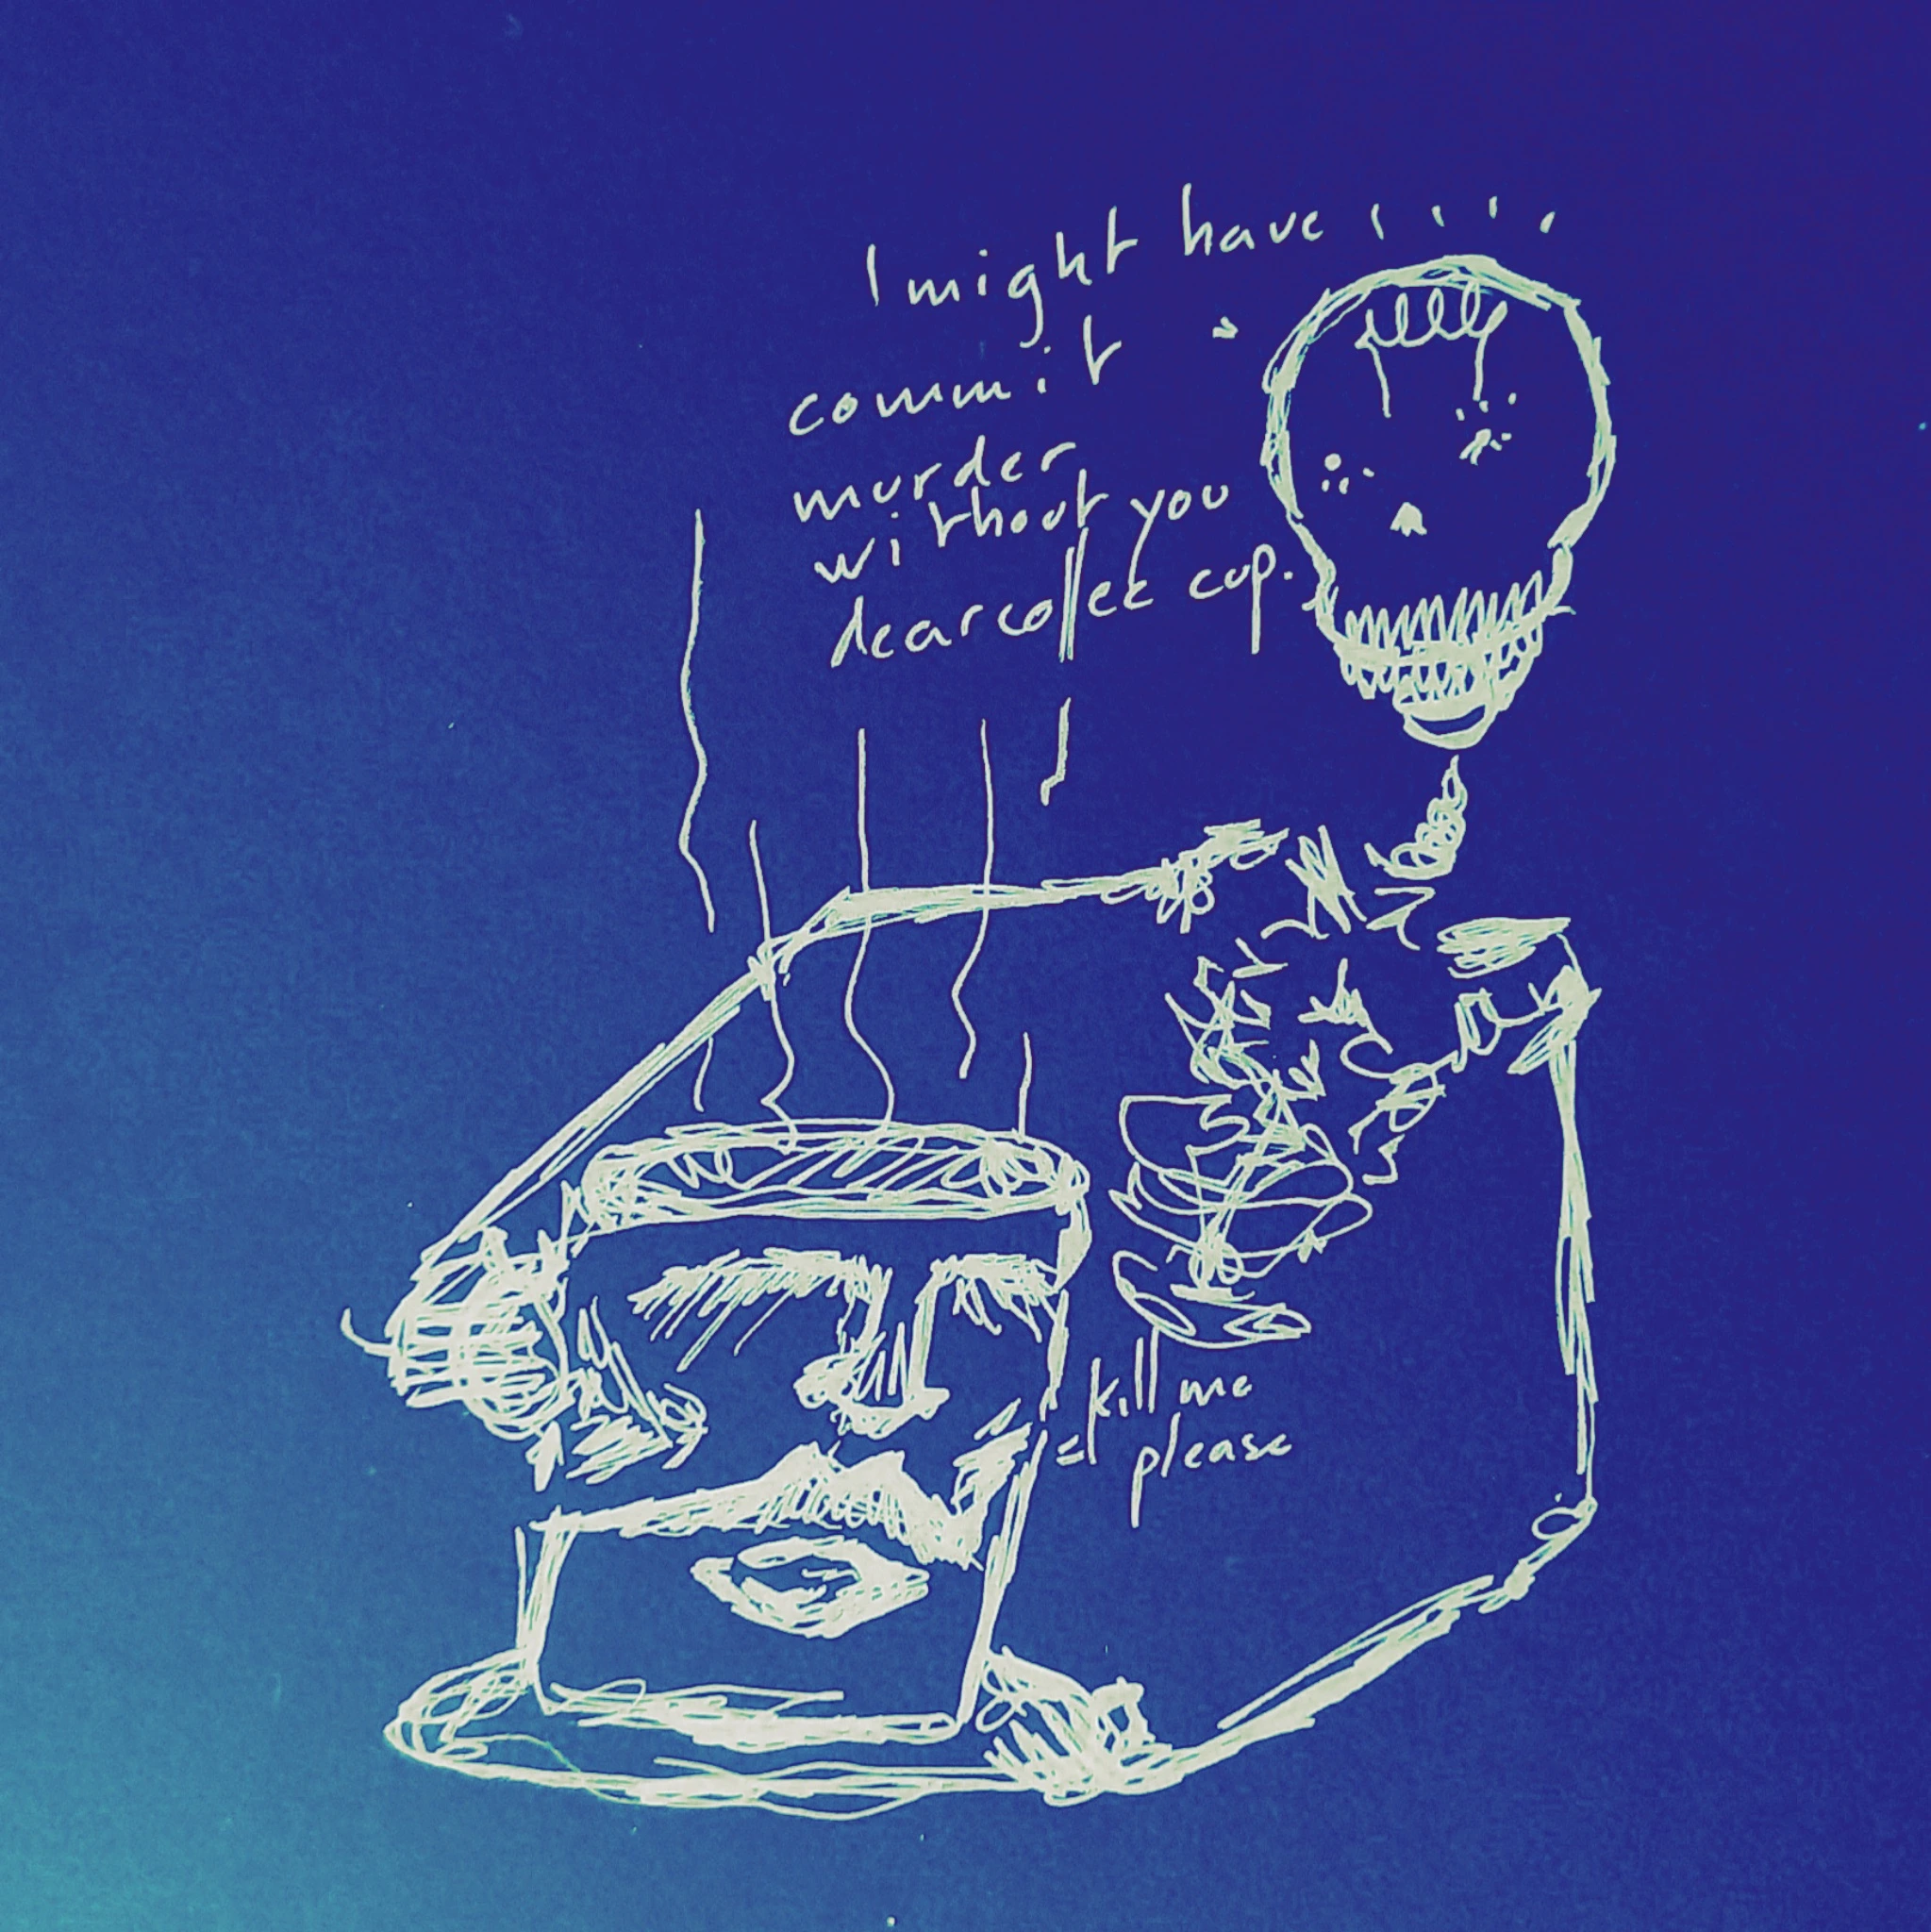 I might have ....
commit
murder
without you
dear coffee cup.
kill me
please